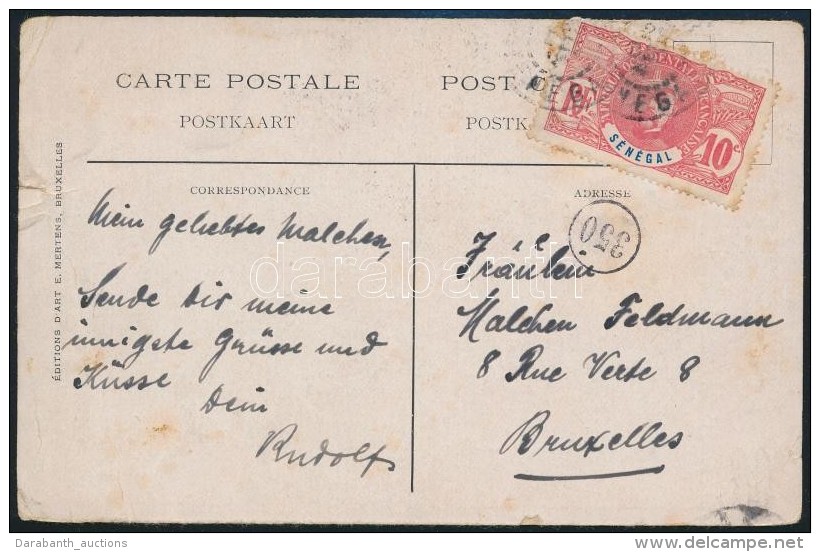 CARTE POSTALE
POST
POSTKAART
POSTK
CORRESPONDANCE
ADRESSE
ÉDITIONS D'ART E. MERTENS, BRUXELLES
10
SÉNÉGAL
10 c.
350
Mein geliebtes Malchen,
Sende Dir meine
innigste Grüsse und
Küsse
Dein
Rudolf
Fräulein
Malchen Feldmann
8 Rue Verte 8
Bruxelles
darabanth
Darabanth_auctions
delcampe.net